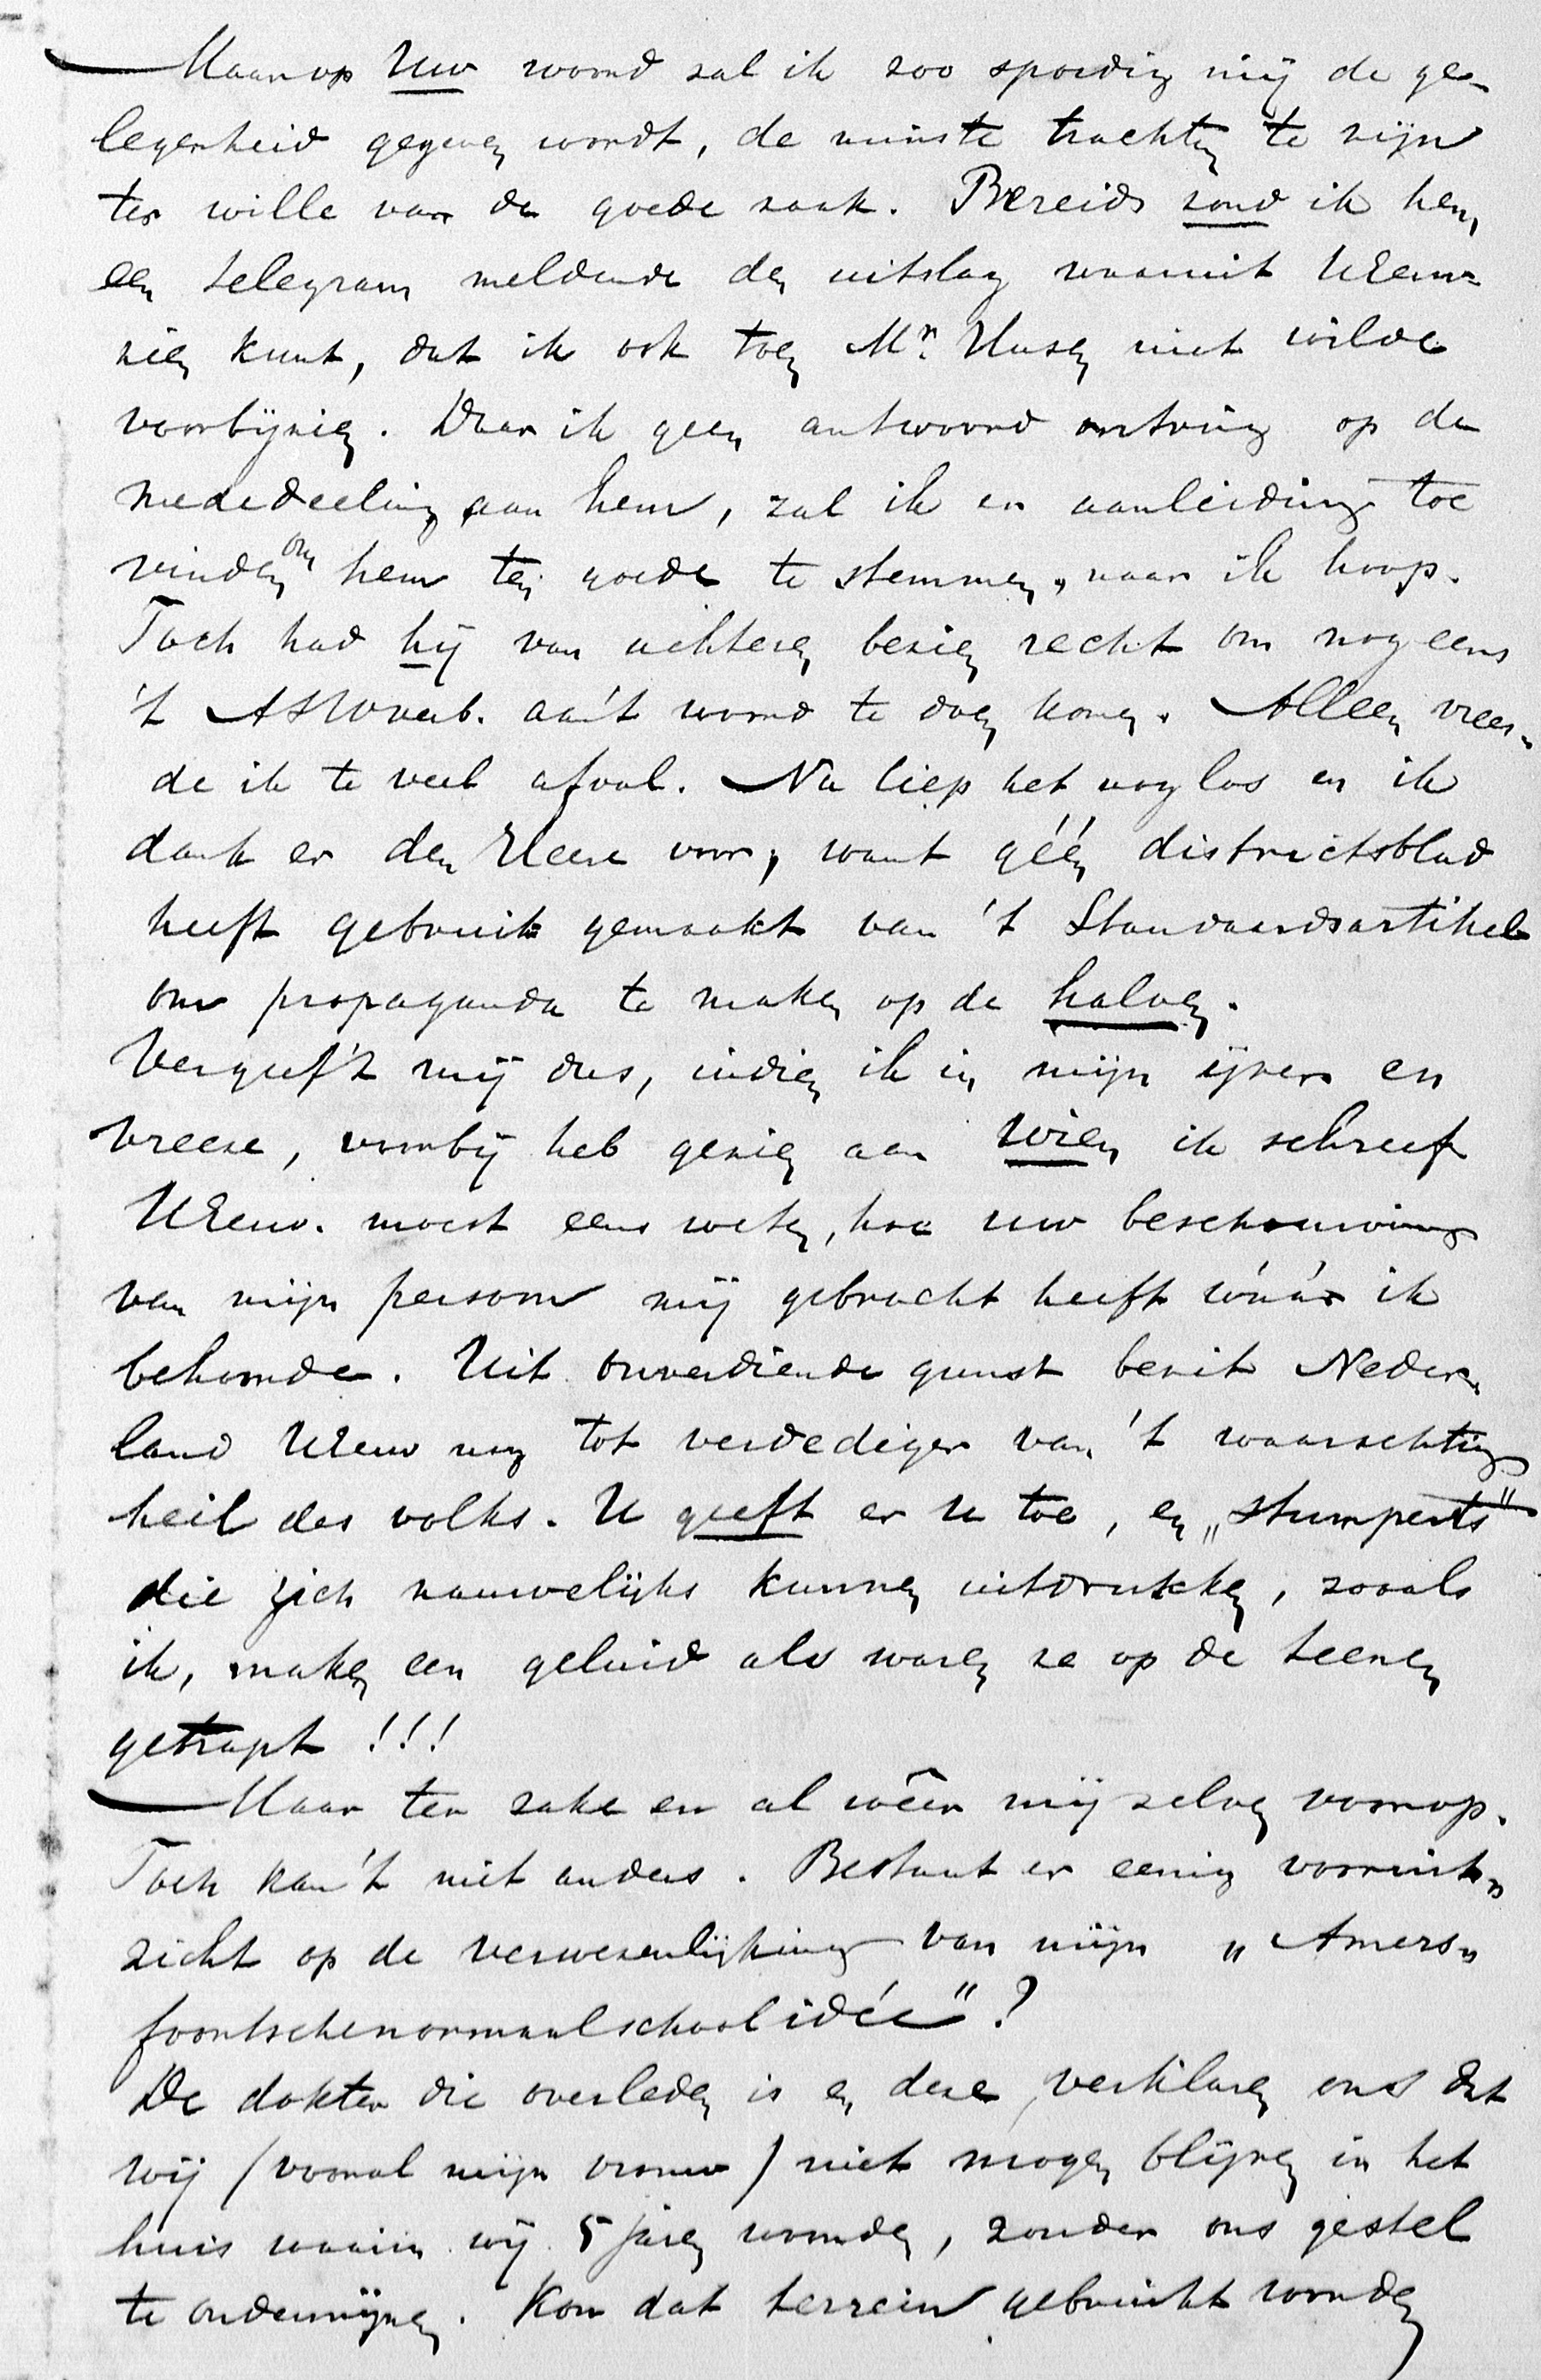 Maar op Uw woord zal ik zoo spoedig mij de ge-
legenheid gegeven wordt, de minste trachten te zijn
ter wille van de goede zaak. Bereids zond ik hem
een telegram meldende den uitslag waaruit UEeuw
zien kunt, dat ik ook toen Mr. niet wilde
voorbijzien. Daar ik geen antwoord ontving op de
mededeeling aan hem, zal ik er aanleiding toe
vinden om hem ten goede te stemmen, naar ik hoop.
Toch had hij van achteren bezien recht om nog eens
't ASWverb. aan't woord te doen komen. Alleen vrees-
de ik te veel afval. Nu liep het nog los en ik
dank er den Heere voor, want géén districtsblad
heeft gebruik gemaakt van 't Standaardsartikel
om propaganda te maken op de halven.
Vergeef't mij dus, indien ik in mijn ijver en
vreeze, voorbij heb gezien aan wien ik schreef
UEeuw. moest eens weten, hoe uw beschouwing
van mijn persoon mij gebracht heeft wáár ik
behoorde. Uit onverdiende gunst bezit Neder-
land UEeuw nog tot verdediger van 't waarachtig
heil des volks. U geeft er u toe, en „stumperts"
die zich nauwelijks kunnen uitdrukken, zooals
ik, maken een geluid als waren ze op de teenen
getrapt !!!
Maar ter zake en al wêer mij zelven voorop.
Toch kan't niet anders. Bestaat er eenig vooruit-
zicht op de verwezenlijking van mijn „Amers-
foortschenormaalschoolidée"?
De dokter die overleden is en deze verklaren ons dat
wij (vooral mijn vrouw) niet mogen blijven in het
huis waarin wij 5 jaren woonden, zonder ons gestel
te ondermijnen. Kon dat terrein gebruikt worden